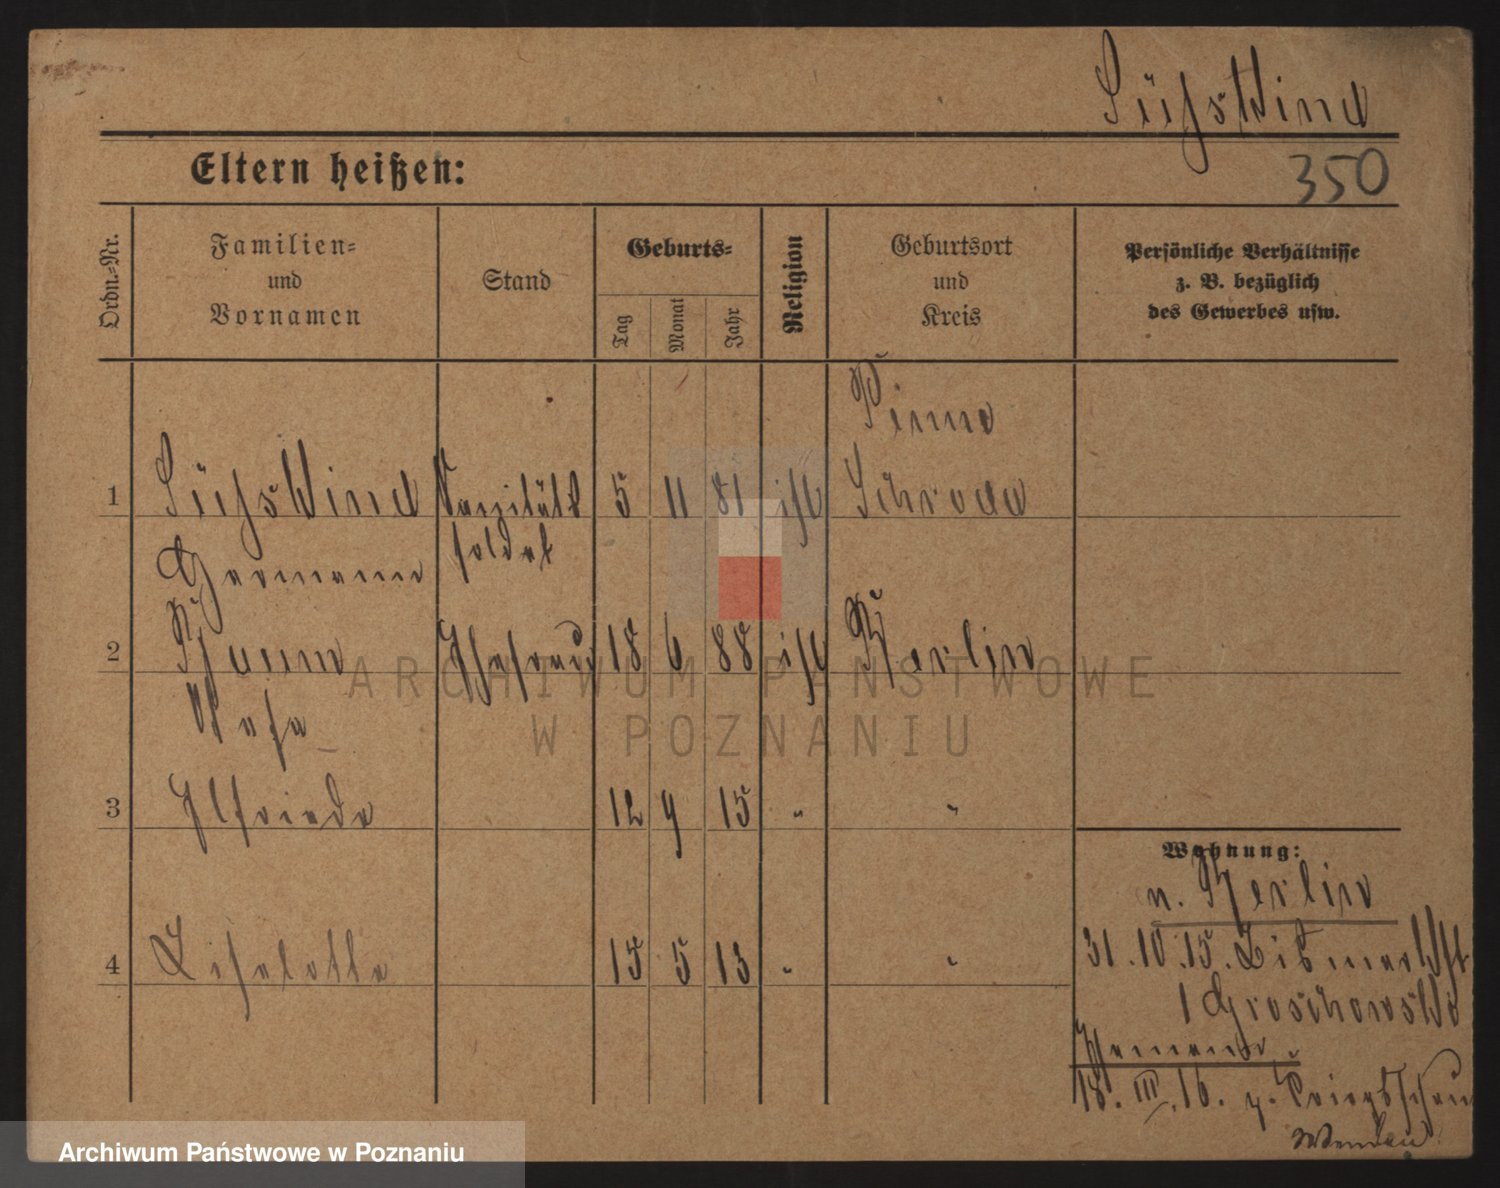 Süßkind
Eltern heißen:
350
Ordn.-Nr.
Familien-
und
Vornamen
Stand
Geburts-
Tag
Monat
Jahr
Religion
Geburtsort
und
Kreis
Persönliche Verhältnisse
z. B. bezüglich
des Gewerbes usw.
Pinne
1 Süßkind Sanitäts 5 11 81 isr
soldat
Hermann
2 Ehefrau 18 6 88 isr Berlin
Rosa
3 Elfriede 12 9 15 " "
4 Liselotte 15 5 13 " "
Wohnung:
n. Berlin
31.10.15. Bismarckst
1
18. III. 16.
ARCHIWUM PAŃSTWOWE
W POZNANIU
Archiwum Państwowe w Poznaniu